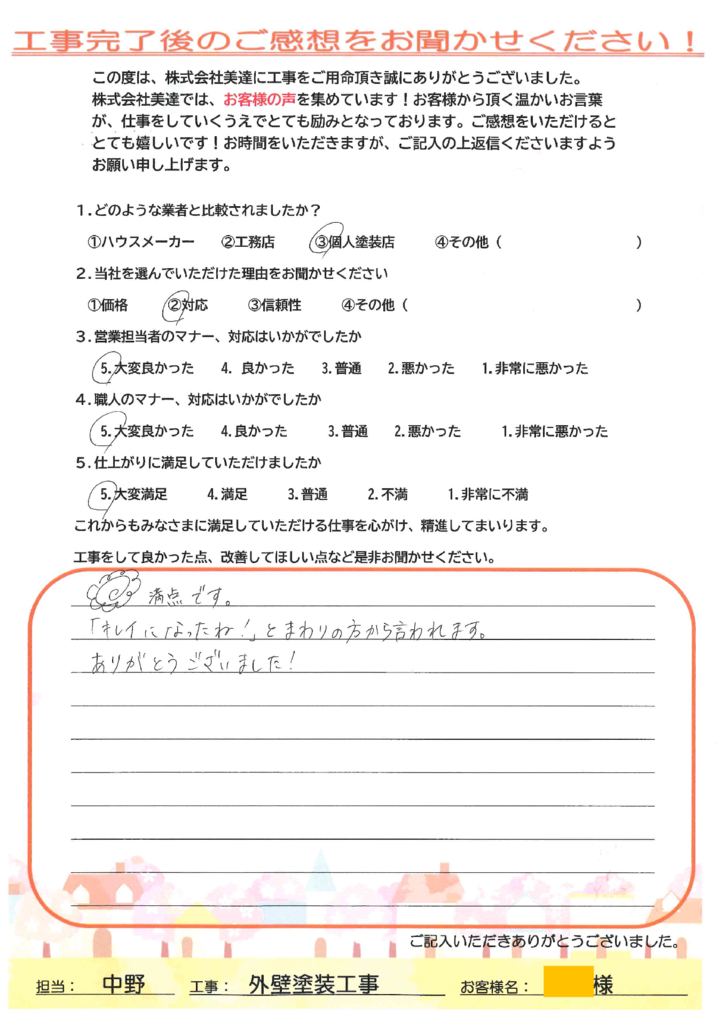 工事完了後のご感想をお聞かせください！
この度は、株式会社美達に工事をご用命頂き誠にありがとうございました。
株式会社美達では、お客様の声を集めています！お客様から頂く温かいお言葉
が、仕事をしていくうえでとても励みとなっております。ご感想をいただけると
とても嬉しいです！お時間をいただきますが、ご記入の上返信くださいますよう
お願い申し上げます。
１.どのような業者と比較されましたか？
①ハウスメーカー ②工務店 ③個人塗装店 ④その他（ ）
２.当社を選んでいただけた理由をお聞かせください
①価格 ②対応 ③信頼性 ④その他（ ）
３.営業担当者のマナー、対応はいかがでしたか
5.大変良かった 4. 良かった 3.普通 2.悪かった 1.非常に悪かった
４.職人のマナー、対応はいかがでしたか
5.大変良かった 4.良かった 3.普通 2.悪かった 1.非常に悪かった
５.仕上がりに満足していただけましたか
5.大変満足 4.満足 3.普通 2.不満 1.非常に不満
これからもみなさまに満足していただける仕事を心がけ、精進してまいります。
工事をして良かった点、改善してほしい点など是非お聞かせください。
満点です。
「キレイになったね！」とまわりの方から言われます。
ありがとうございました！
ご記入いただきありがとうございました。
担当： 中野 工事： 外壁塗装工事 お客様名： 様